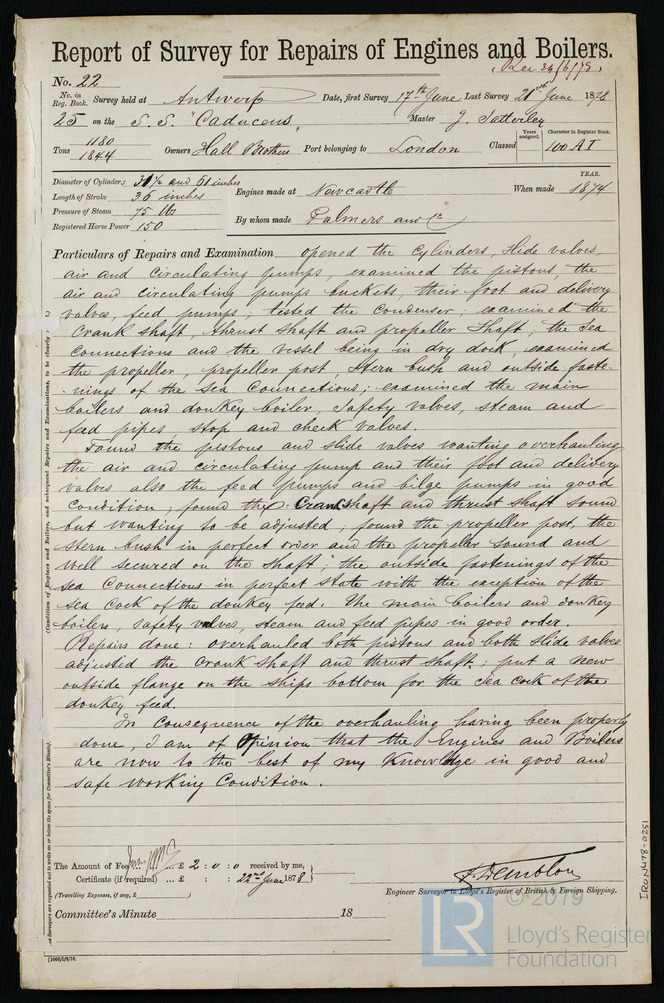 Report of Survey for Repairs of Engines and Boilers.
Rec 24/6/78
No. 22
No. in Reg. Book. Survey held at Antwerp Date, first Survey 17th June Last Survey 21st June 1878
25 on the S.S. "Caduceus" Master J.
Tons 1180 1844 Owners Hall Brothers Port belonging to London Classed Years assigned. Character in Register Book. 100 A I
Diameter of Cylinders 31½ and 61 inches
Length of Stroke 36 inches
Pressure of Steam 75 lbs
Registered Horse Power 150
Engines made at Newcastle When made YEAR. 1874
By whom made Palmers and Co
Particulars of Repairs and Examination opened the cylinders, slide valves,
air and circulating pumps, examined the pistons, the
air and circulating pumps buckets, their foot and delivery
valves, feed pumps, tested the condenser; examined the
crank shaft, thrust shaft and propeller shaft, the sea
connections and the vessel being in dry dock, examined
the propeller, propeller post, stern bush and outside faste-
nings of the sea connections; examined the main
boilers and donkey boiler, safety valves, steam and
feed pipes stop and check valves.
Found the pistons and slide valves wanting overhauling
the air and circulating pump and their foot and delivery
valves also the feed pumps and bilge pumps in good
condition, found the crankshaft and thrust shaft sound
but wanting to be adjusted, found the propeller post, the
stern bush in perfect order and the propeller sound and
well secured on the shaft; the outside fastenings of the
sea connections in perfect state with the exception of the
sea cock of the donkey feed. The main boilers and donkey
boilers, safety valves, steam and feed pipes in good order.
Repairs done: overhauled both pistons and both slide valves
adjusted the crank shaft and thrust shaft; put a new
outside flange on the ships bottom for the sea cock of the
donkey feed.
In consequence of the overhauling having been properly
done, I am of opinion that the Engines and Boilers
are now to the best of my knowledge in good and
safe working condition.
The Amount of Fee ... £ 2 : 0 : 0 received by me,
Certificate (if required) ... £ : : 22nd June 1878
(Travelling Expenses, if any, £ )
Engineer Surveyor to Lloyd's Register of British & Foreign Shipping.
Committee's Minute 18
[1000/5/9/76.
(Condition of Engines and Boilers, and subsequent Repairs and Examinations, to be clearly
Surveyors are requested not to write on or below the space for Committee's Minute).
IRON478-0251
© 2019
LR
Lloyd's Register
Foundation